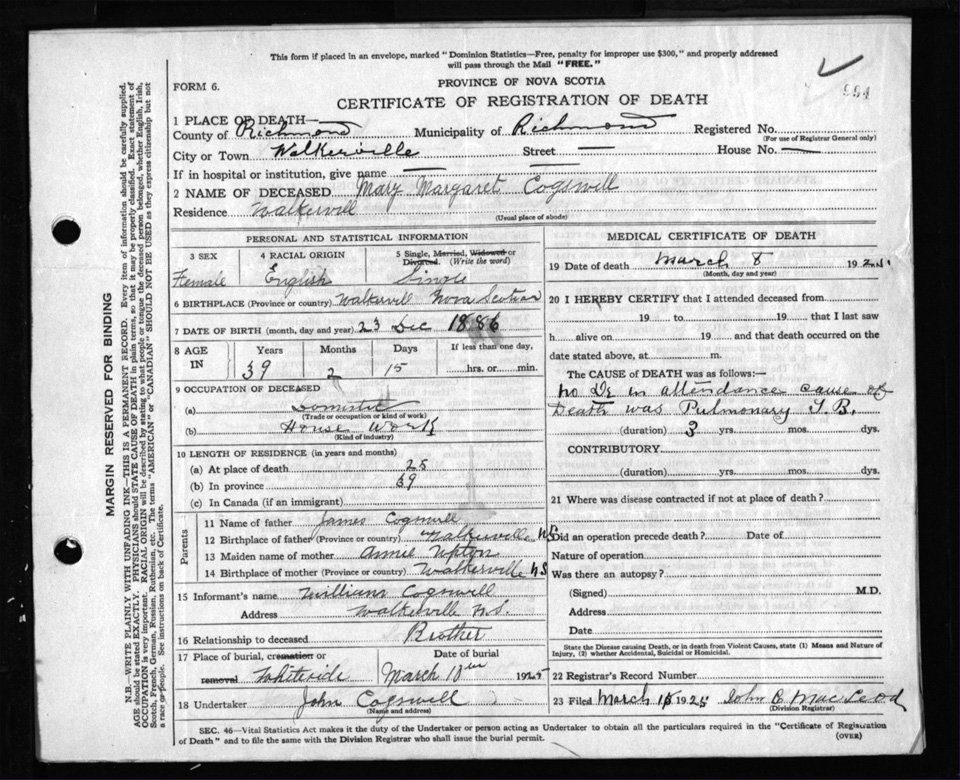 This form if placed in an envelope, marked "Dominion Statistics—Free, penalty for improper use $300," and properly addressed
will pass through the Mail "FREE."
FORM 6.
PROVINCE OF NOVA SCOTIA
994
CERTIFICATE OF REGISTRATION OF DEATH
1 PLACE OF DEATH—
County of Richmond Municipality of Richmond Registered No.
(For use of Registrar General only)
City or Town Walkerville Street — House No. —
If in hospital or institution, give name —
2 NAME OF DECEASED Mary Margaret Cogswill
Residence Walkervill
(Usual place of abode)
PERSONAL AND STATISTICAL INFORMATION
3 SEX
Female
4 RACIAL ORIGIN
English
5 Single, Married, Widowed or
Divorced. (Write the word)
Single
6 BIRTHPLACE (Province or country) Walkervill Nova Scotia
7 DATE OF BIRTH (month, day and year) 23 Dec 1886
8 AGE IN
Years Months Days If less than one day,
39 2 15 hrs. or min.
9 OCCUPATION OF DECEASED
(a) Domestic
(Trade or occupation or kind of work)
(b) House Work
(Kind of industry)
10 LENGTH OF RESIDENCE (in years and months)
(a) At place of death 25
(b) In province 39
(c) In Canada (if an immigrant)
Parents
11 Name of father James Cogswill
12 Birthplace of father (Province or country) Walkerville N S
13 Maiden name of mother Annie Upton
14 Birthplace of mother (Province or country) Walkerville N S
15 Informant's name William Cogswill
Address Walkerville N.S.
16 Relationship to deceased Brother
17 Place of burial, cremation or
removal Whiteside
Date of burial
March 10th 1925
18 Undertaker John Cogswell
(Name and address)
MEDICAL CERTIFICATE OF DEATH
19 Date of death March 8 192
(Month, day and year)
20 I HEREBY CERTIFY that I attended deceased from
19 to 19 that I last saw
h alive on 19 and that death occurred on the
date stated above, at m.
The CAUSE OF DEATH was as follows:—
No Dr in attendance cause of
Death was Pulmonary T.B.
(duration) 3 yrs. mos. dys.
CONTRIBUTORY
(duration) yrs. mos. dys.
21 Where was disease contracted if not at place of death?
Did an operation precede death? Date of
Nature of operation
Was there an autopsy?
(Signed) M.D.
Address
Date
State the Disease causing Death, or in death from Violent Causes, state (1) Means and Nature of
Injury, (2) whether Accidental, Suicidal or Homicidal.
22 Registrar's Record Number
23 Filed March 1925 John B MacLeod
(Division Registrar)
SEC. 46—Vital Statistics Act makes it the duty of the Undertaker or person acting as Undertaker to obtain all the particulars required in the "Certificate of Registration
of Death" and to file the same with the Division Registrar who shall issue the burial permit.
(OVER)
MARGIN RESERVED FOR BINDING
N.B.—WRITE PLAINLY WITH UNFADING INK—THIS IS A PERMANENT RECORD. Every item of information should be carefully supplied.
AGE should be stated EXACTLY. PHYSICIANS should STATE CAUSE OF DEATH in plain terms, so that it may be properly classified. Exact statement of
OCCUPATION is very important. RACIAL ORIGIN will be described by stating to what people or tongue the deceased person belonged, whether English, Irish,
Scotch, French, German, Russian, Ruthenian, etc. The terms "AMERICAN" or "CANADIAN" SHOULD NOT BE USED as they express citizenship but not
a race or people. See instructions on back of Certificate.